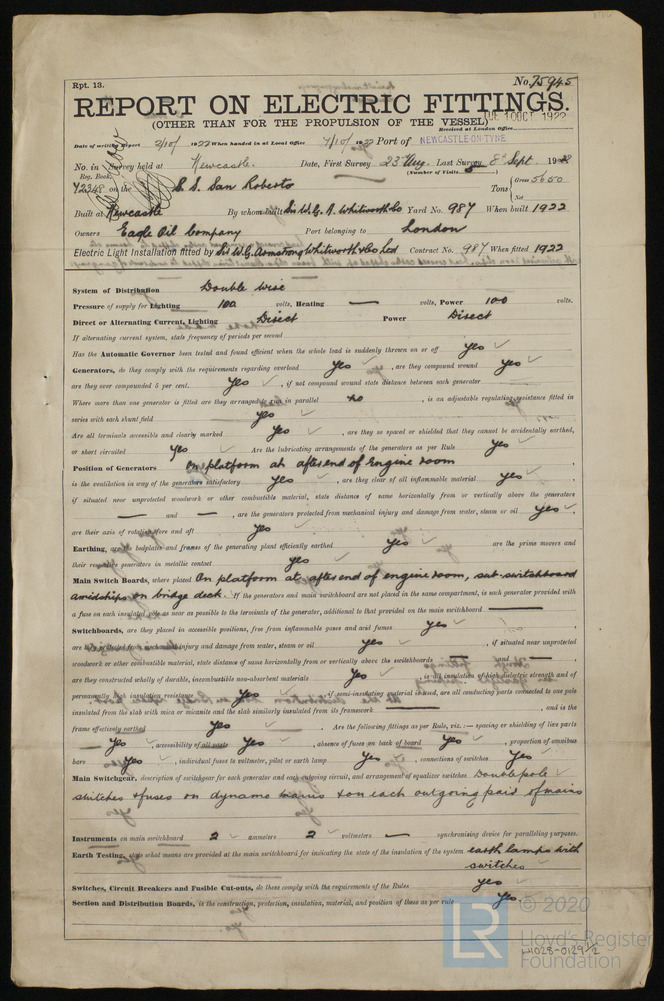 Rpt. 13. No. 75945
REPORT ON ELECTRIC FITTINGS.
(OTHER THAN FOR THE PROPULSION OF THE VESSEL)
TUE 10 OCT 1922
Received at London Office
Date of writing Report 2/10/ 1922 When handed in at Local Office 7/10/ 1922 Port of NEWCASTLE-ON-TYNE
No. in Survey held at Newcastle. Date, First Survey 23rd Aug. Last Survey 8th Sept. 1922
Reg. Book. (Number of Visits 5)
42348 on the S.S. San Roberto Tons { Gross 5650
Net
Built at Newcastle By whom built Sir W.G. A. Whitworth & Co Yard No. 987 When built 1922
Owners Eagle Oil Company Port belonging to London
Electric Light Installation fitted by Sir W.G. Armstrong Whitworth & Co Ltd Contract No. 987 When fitted 1922
System of Distribution Double wire
Pressure of supply for Lighting 100 volts, Heating — volts, Power 100 volts.
Direct or Alternating Current, Lighting Direct Power Direct
If alternating current, state frequency of periods per second
Has the Automatic Governor been tested and found efficient when the whole load is suddenly thrown on or off yes
Generators, do they comply with the requirements regarding overload yes, are they compound wound yes
are they over compounded 5 per cent. yes, if not compound wound state distance between each generator
Where more than one generator is fitted are they arranged to run in parallel no, is an adjustable regulating resistance fitted in
series with each shunt field yes
Are all terminals accessible and clearly marked yes, are they so spaced or shielded that they cannot be accidentally earthed,
or short circuited yes Are the lubricating arrangements of the generators as per Rule yes
Position of Generators on platform at after end of Engine room
is the ventilation in way of the generators satisfactory yes, are they clear of all inflammable material yes
if situated near unprotected woodwork or other combustible material, state distance of same horizontally from or vertically above the generators
— and —, are the generators protected from mechanical injury and damage from water, steam or oil yes,
are their axis of rotation fore and aft yes
Earthing, are the bedplates and frames of the generating plant efficiently earthed yes are the prime movers and
their respective generators in metallic contact yes
Main Switch Boards, where placed On platform at after end of engine room, sub-switchboard
amidships on bridge deck. If the generators and main switchboard are not placed in the same compartment, is each generator provided with
a fuse on each insulated pole as near as possible to the terminals of the generator, additional to that provided on the main switchboard —
Switchboards, are they placed in accessible positions, free from inflammable gases and acid fumes yes,
are they protected from mechanical injury and damage from water, steam or oil yes, if situated near unprotected
woodwork or other combustible material, state distance of same horizontally from or vertically above the switchboards — and —
are they constructed wholly of durable, incombustible non-absorbent materials yes, is all insulation of high dielectric strength and of
permanently high insulation resistance yes, if semi-insulating material is used, are all conducting parts connected to one pole
insulated from the slab with mica or micanite and the slab similarly insulated from its framework —, and is the
frame effectively earthed yes. Are the following fittings as per Rule, viz.:— spacing or shielding of live parts
yes, accessibility of all parts yes, absence of fuses on back of board yes, proportion of omnibus
bars yes, individual fuses to voltmeter, pilot or earth lamp yes, connections of switches yes
Main Switchgear, description of switchgear for each generator and each outgoing circuit, and arrangement of equalizer switches Double pole
switches & fuses on dynamo mains & on each outgoing pair of mains
Instruments on main switchboard 2 ammeters 2 voltmeters — synchronising device for paralleling purposes.
Earth Testing, state what means are provided at the main switchboard for indicating the state of the insulation of the system earth lamps with
switches
Switches, Circuit Breakers and Fusible Cut-outs, do these comply with the requirements of the Rules yes
Section and Distribution Boards, is the construction, protection, insulation, material, and position of these as per rule yes.
LR © 2020
Lloyd's Register
Foundation